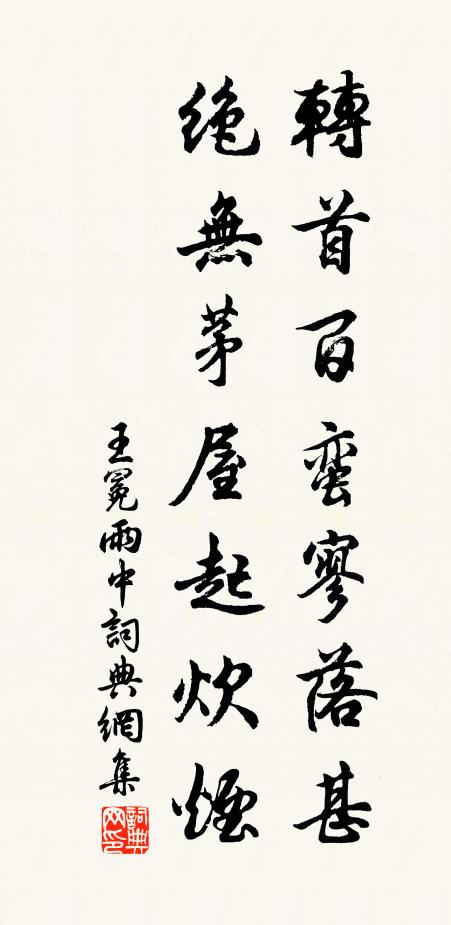 轉首百蛮寥落甚
絶無茅屋起炊煙
王冕雨中詞典網集
詞典网印